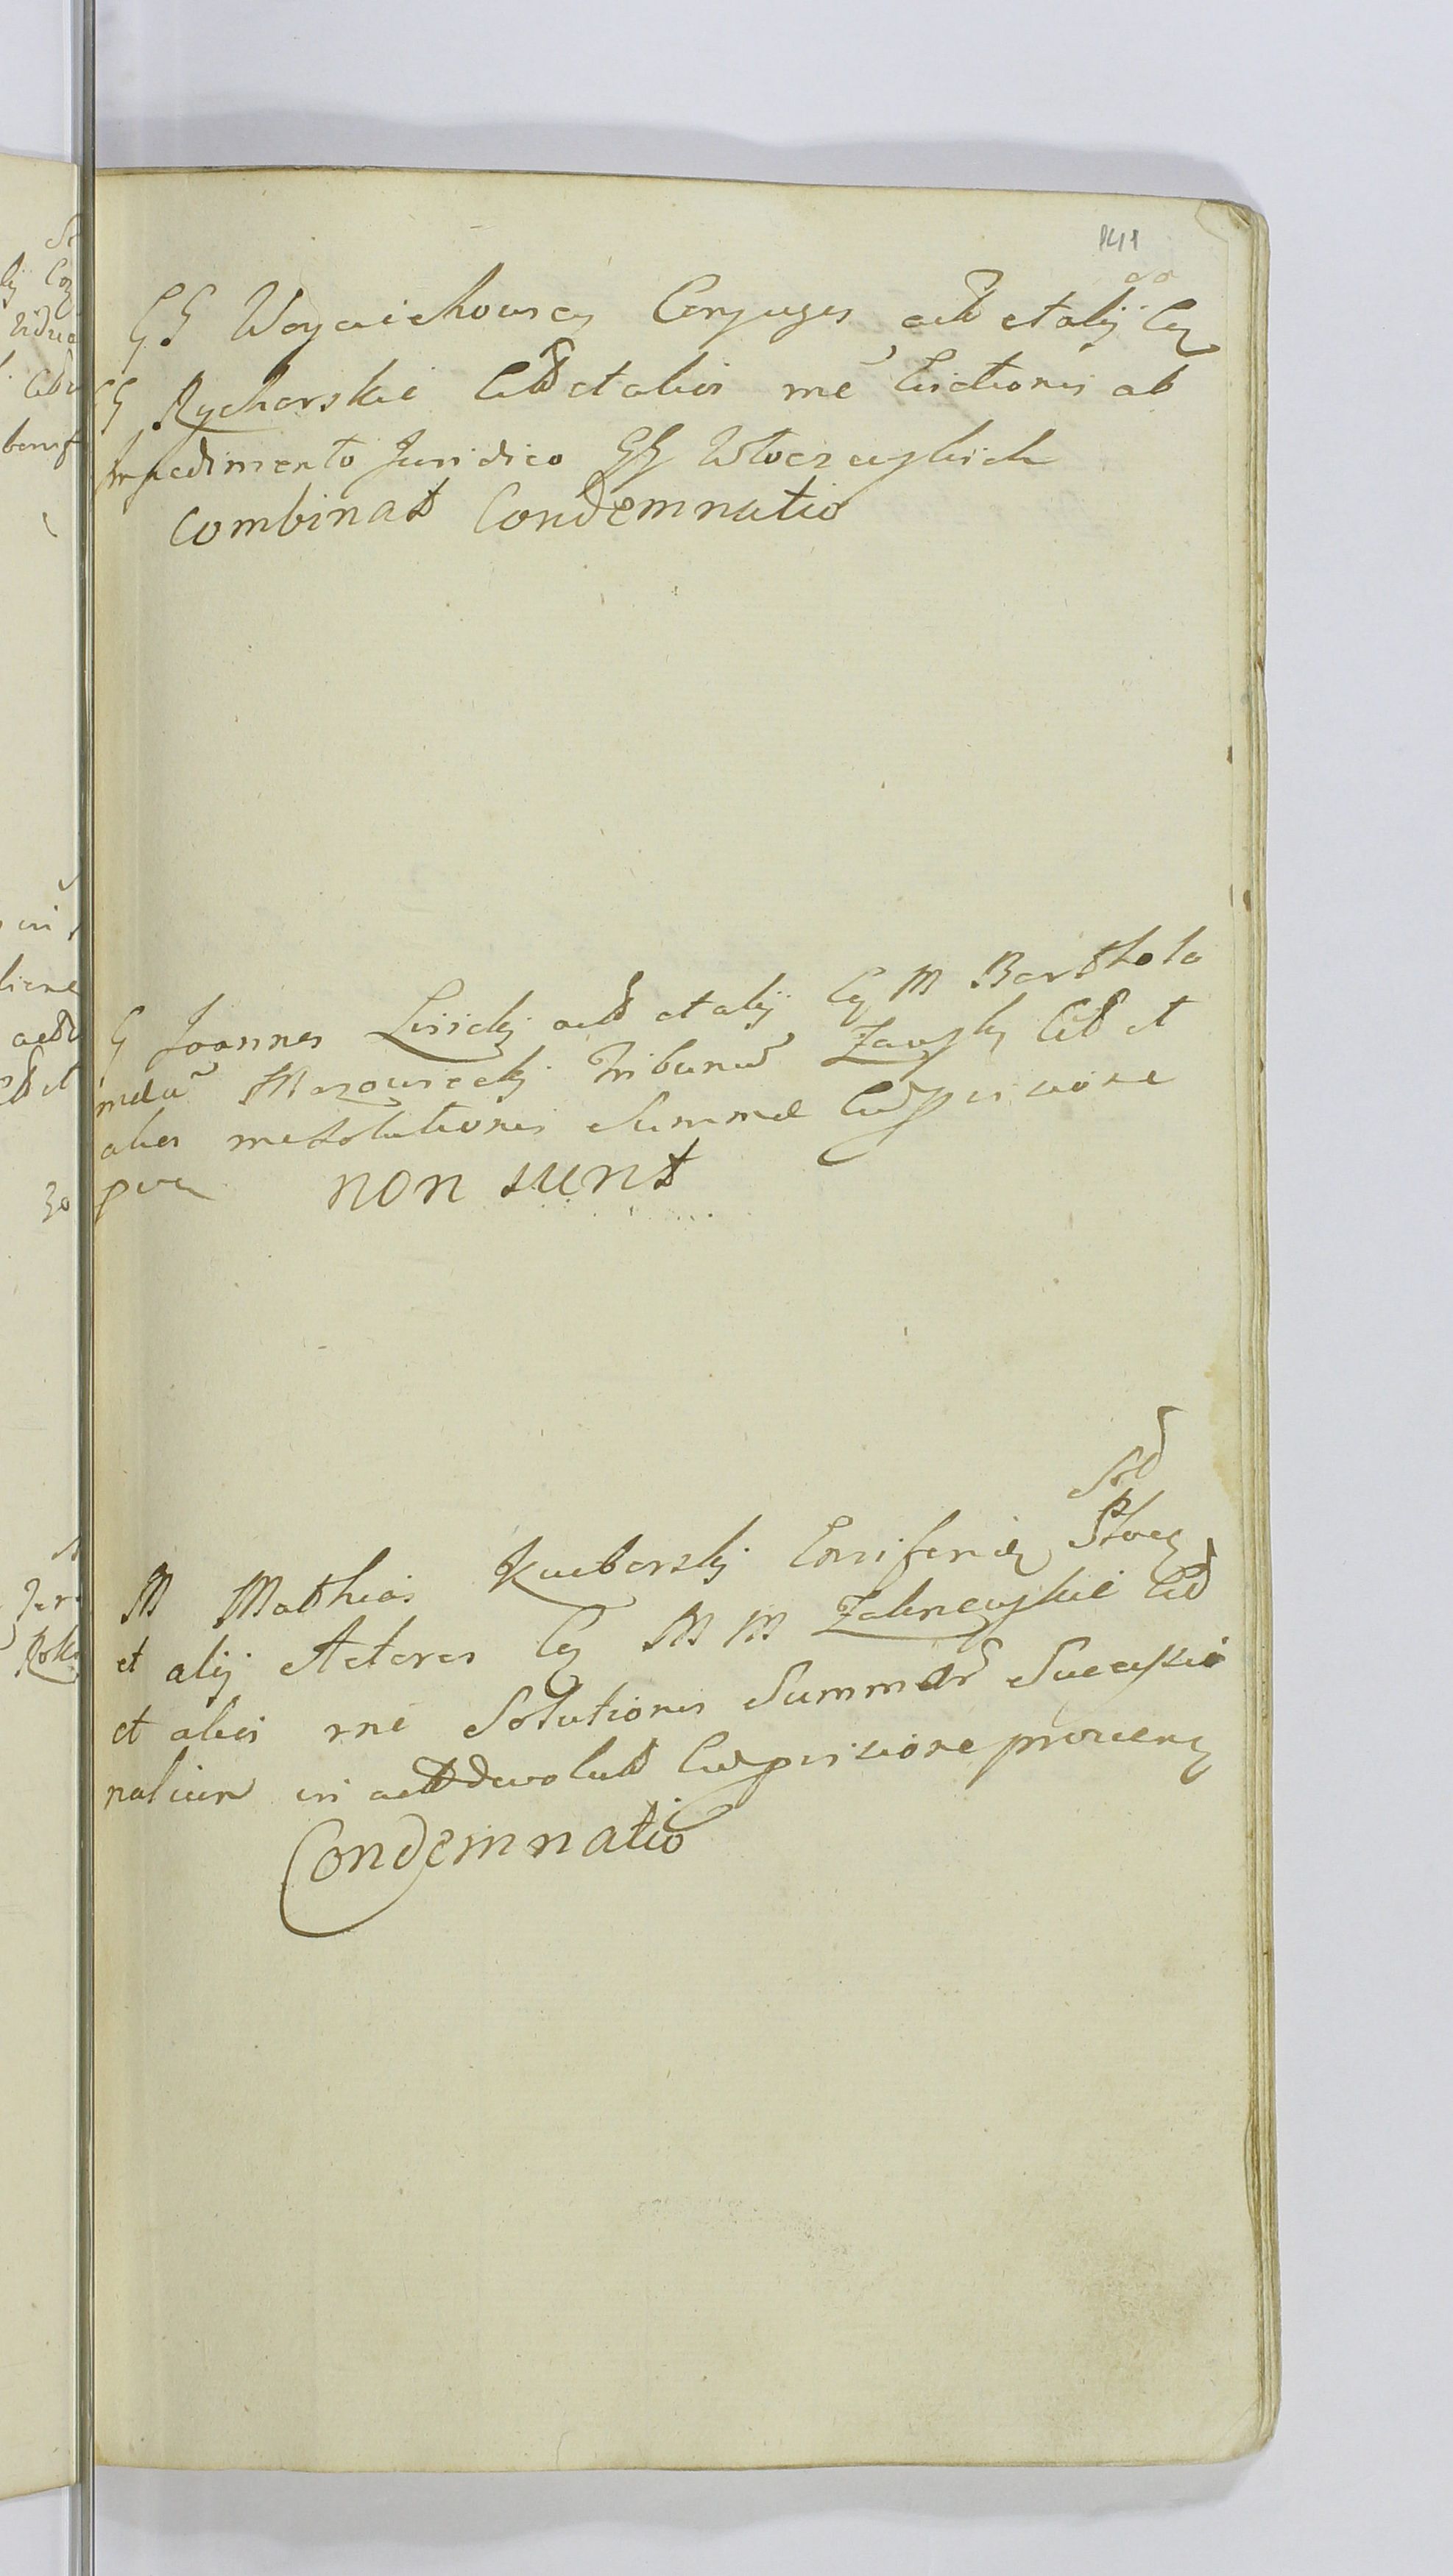 141
GG Woyciechowscy Conjuges act et alij Cq
GG Rycharskie Cit et alios rne Evictionis ab
Impedimento Juridico GG Wtoczewskich
Combinat Condemnatio
G Joannes Lisickj act et alij Cq M Bartholo
meu Mazowieckj Tribunu Zawsky Cit et
alios rne Solutionis Summae
non sunt
M Mathias Kuuborskj Ensiferi Ploc
et alij Actores Cq MM Zakrewskie Cit
et alios rne Solutionis Summar Succesio
nalium in act devolut provenq
Condemnatio